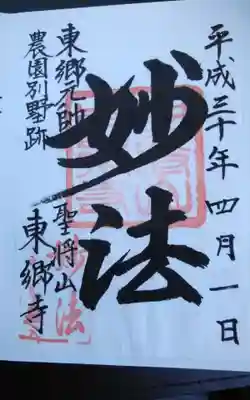 平成三十年四月一日
妙法
東郷元帥
農園別墅跡
聖将山
東郷寺